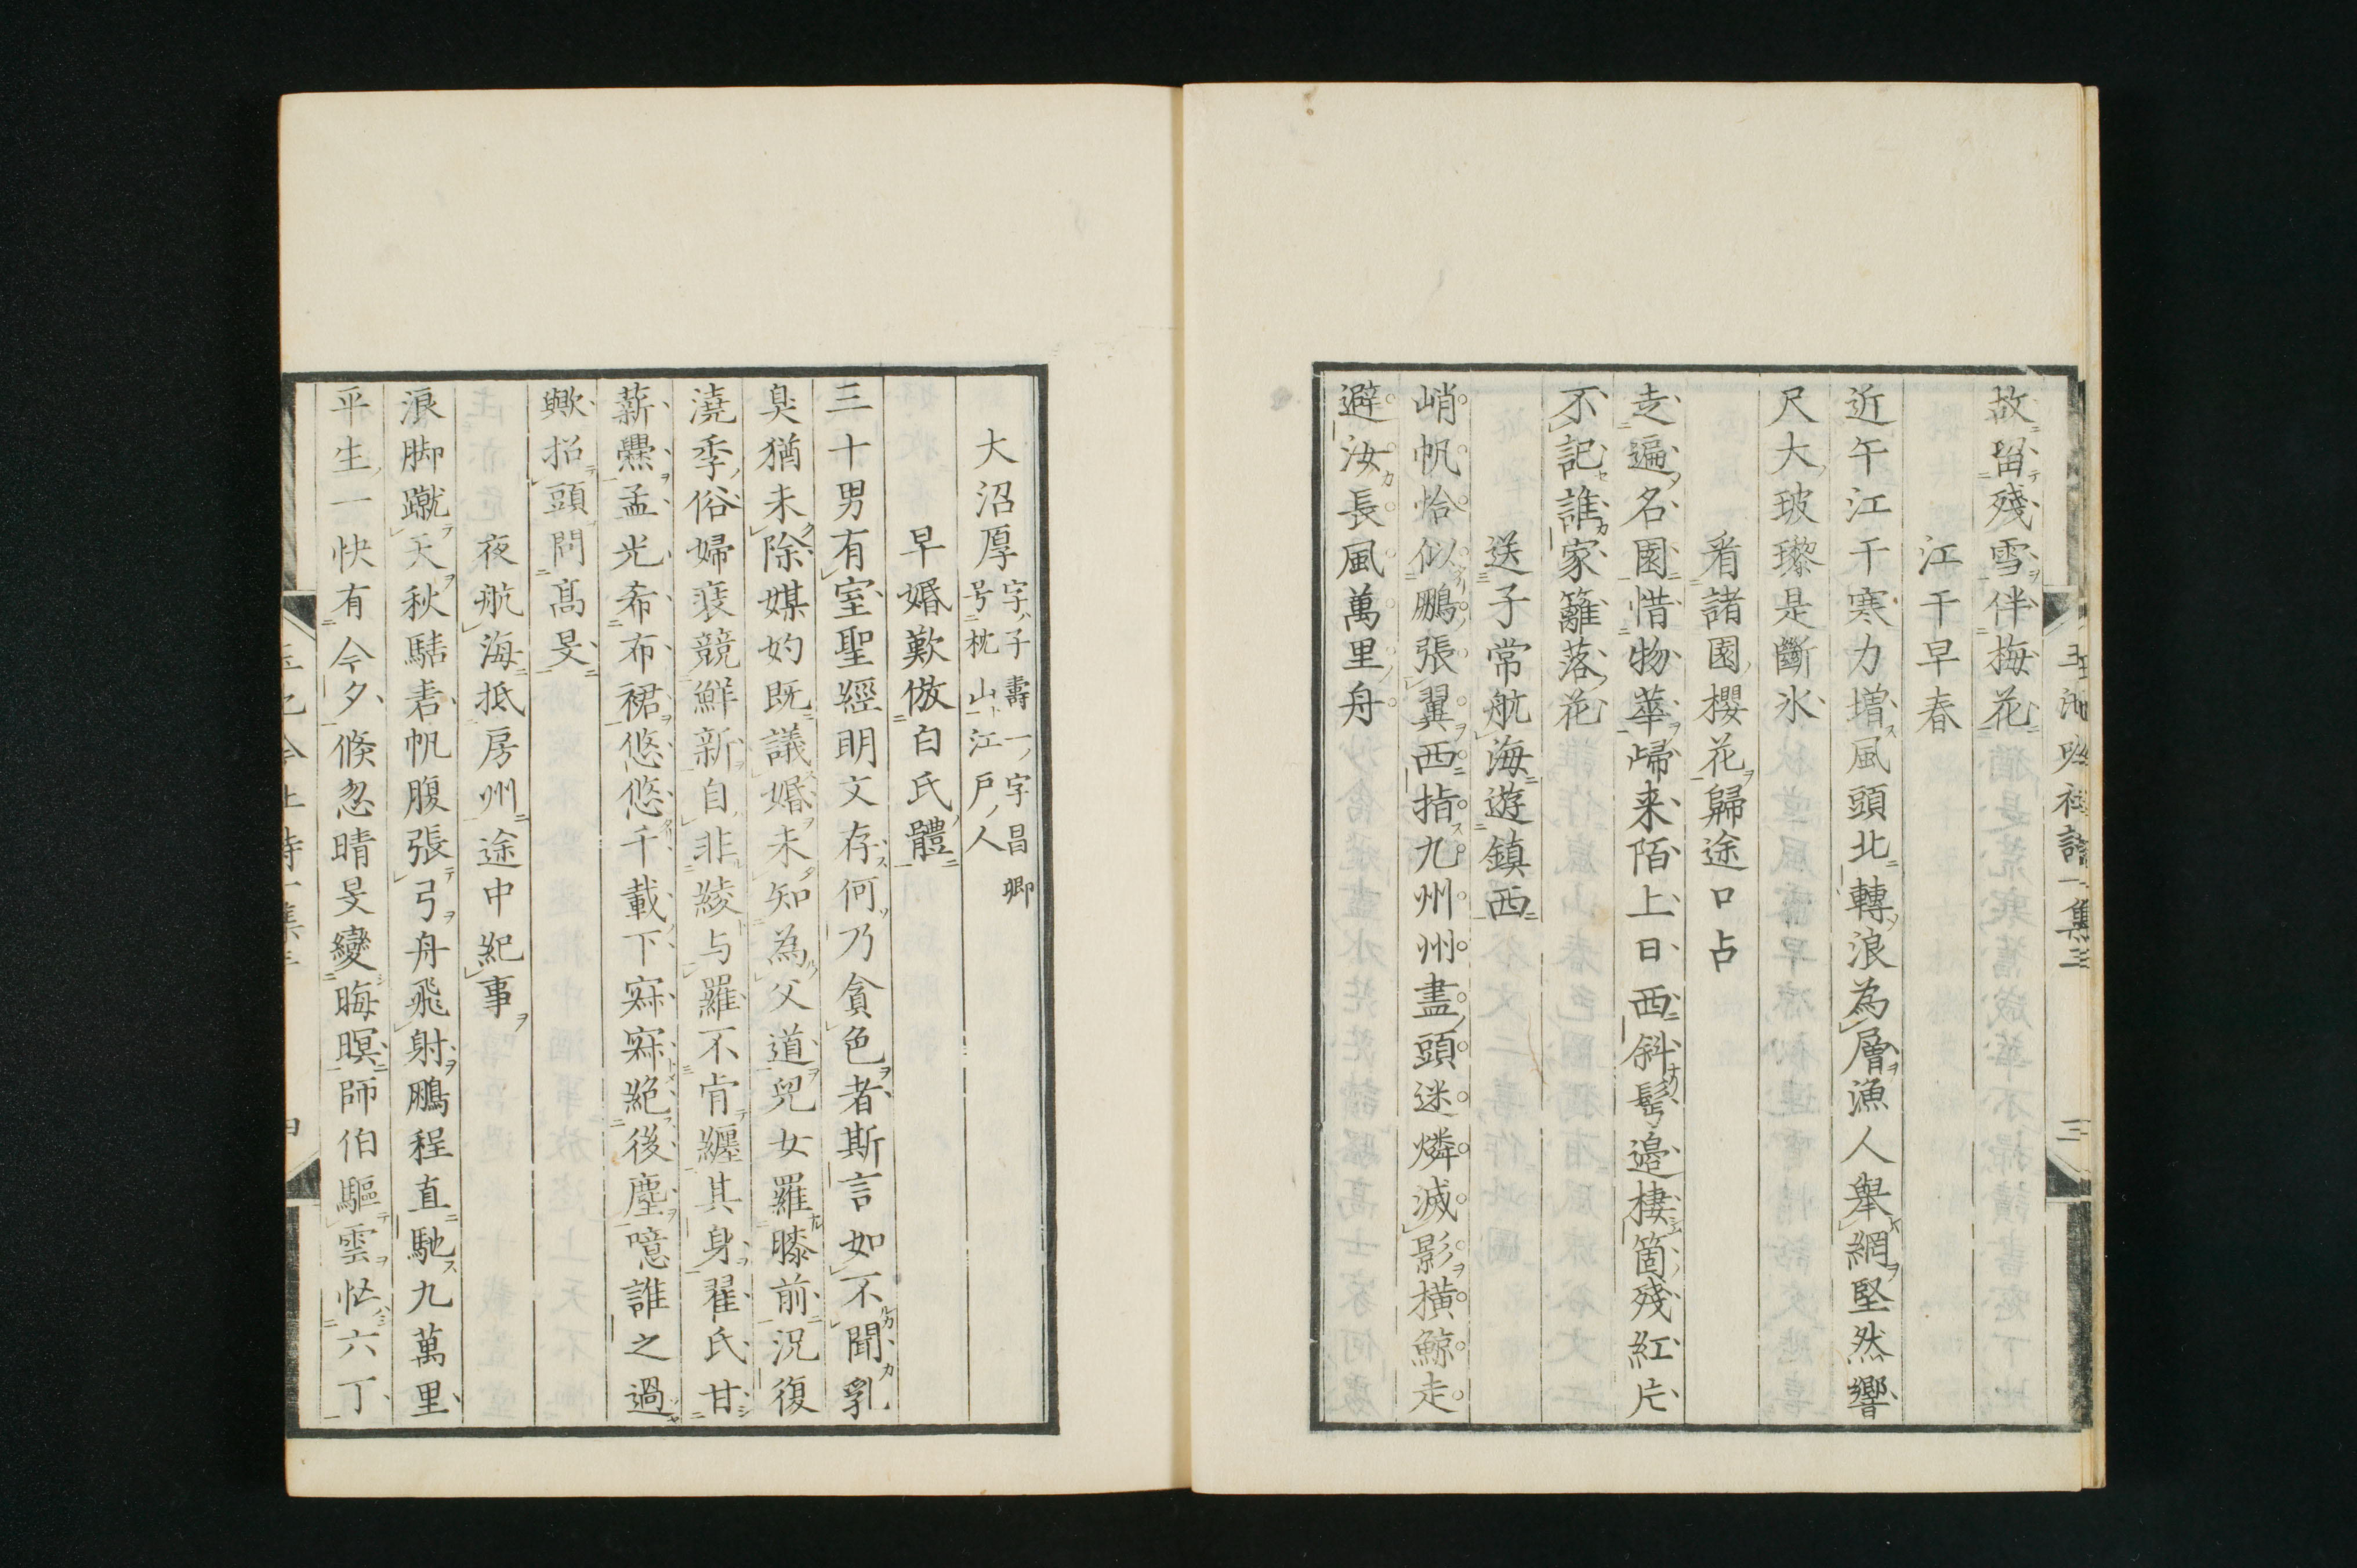 故留殘雪伴梅花
江干早春
近午江干寒力増風頭北轉浪為層漁人舉網堅然響
尺大玻瓈是斷氷
看諸園櫻花歸途口占
走遍名園惜物華歸来陌上日西斜髩邉棲箇殘紅片
不記誰家籬落花
送子常航海遊鎮西
峭帆恰似鵬張翼西指九州州盡頭迷燐滅影橫鯨走
避汝長風萬里舟
大沼厚
字子壽一字昌卿
号枕山江戸人
早婚歎倣白氏體
三十男有室聖經明文存何乃貪色者斯言如不聞乳
臭猶未除媒妁既議婚未知為父道兒女羅膝前況復
澆季俗婦裝競鮮新自非綾与羅不肯纏其身翟氏甘
薪爨孟光希布裙悠悠千載下寂寂絶後塵噫誰之過
歟招頭問髙旻
夜航海抵房州途中紀事
浪脚蹴天秋駭帆腹張弓舟飛射鵬程直馳九萬里
平生一快有今夕倏忽晴旻變晦暝師伯驅雲忙六丁